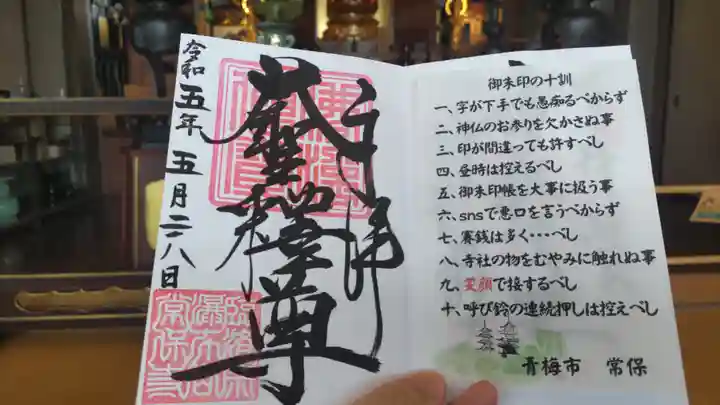 奉拝
釋迦尊
令和五年五月二八日
御朱印の十訓
一、字が下手でも愚痴るべからず
二、神仏のお参りを欠かさぬ事
三、印が間違っても許すべし
四、昼時は控えるべし
五、御朱印帳を大事に扱う事
六、snsで悪口を言うべからず
七、賽銭は多く・・・べし
八、寺社の物をむやみに触れぬ事
九、笑顔で接するべし
十、呼び鈴の連続押しは控えべし
青梅市 常保